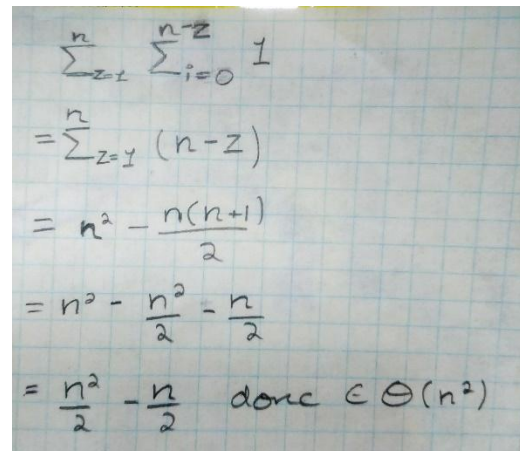 ∑_{z=1}^{n} ∑_{i=0}^{n-z} 1
= ∑_{z=1}^{n} (n-z)
= n² - n(n+1)/2
= n² - n²/2 - n/2
= n²/2 - n/2 donc ∈ Θ(n²)